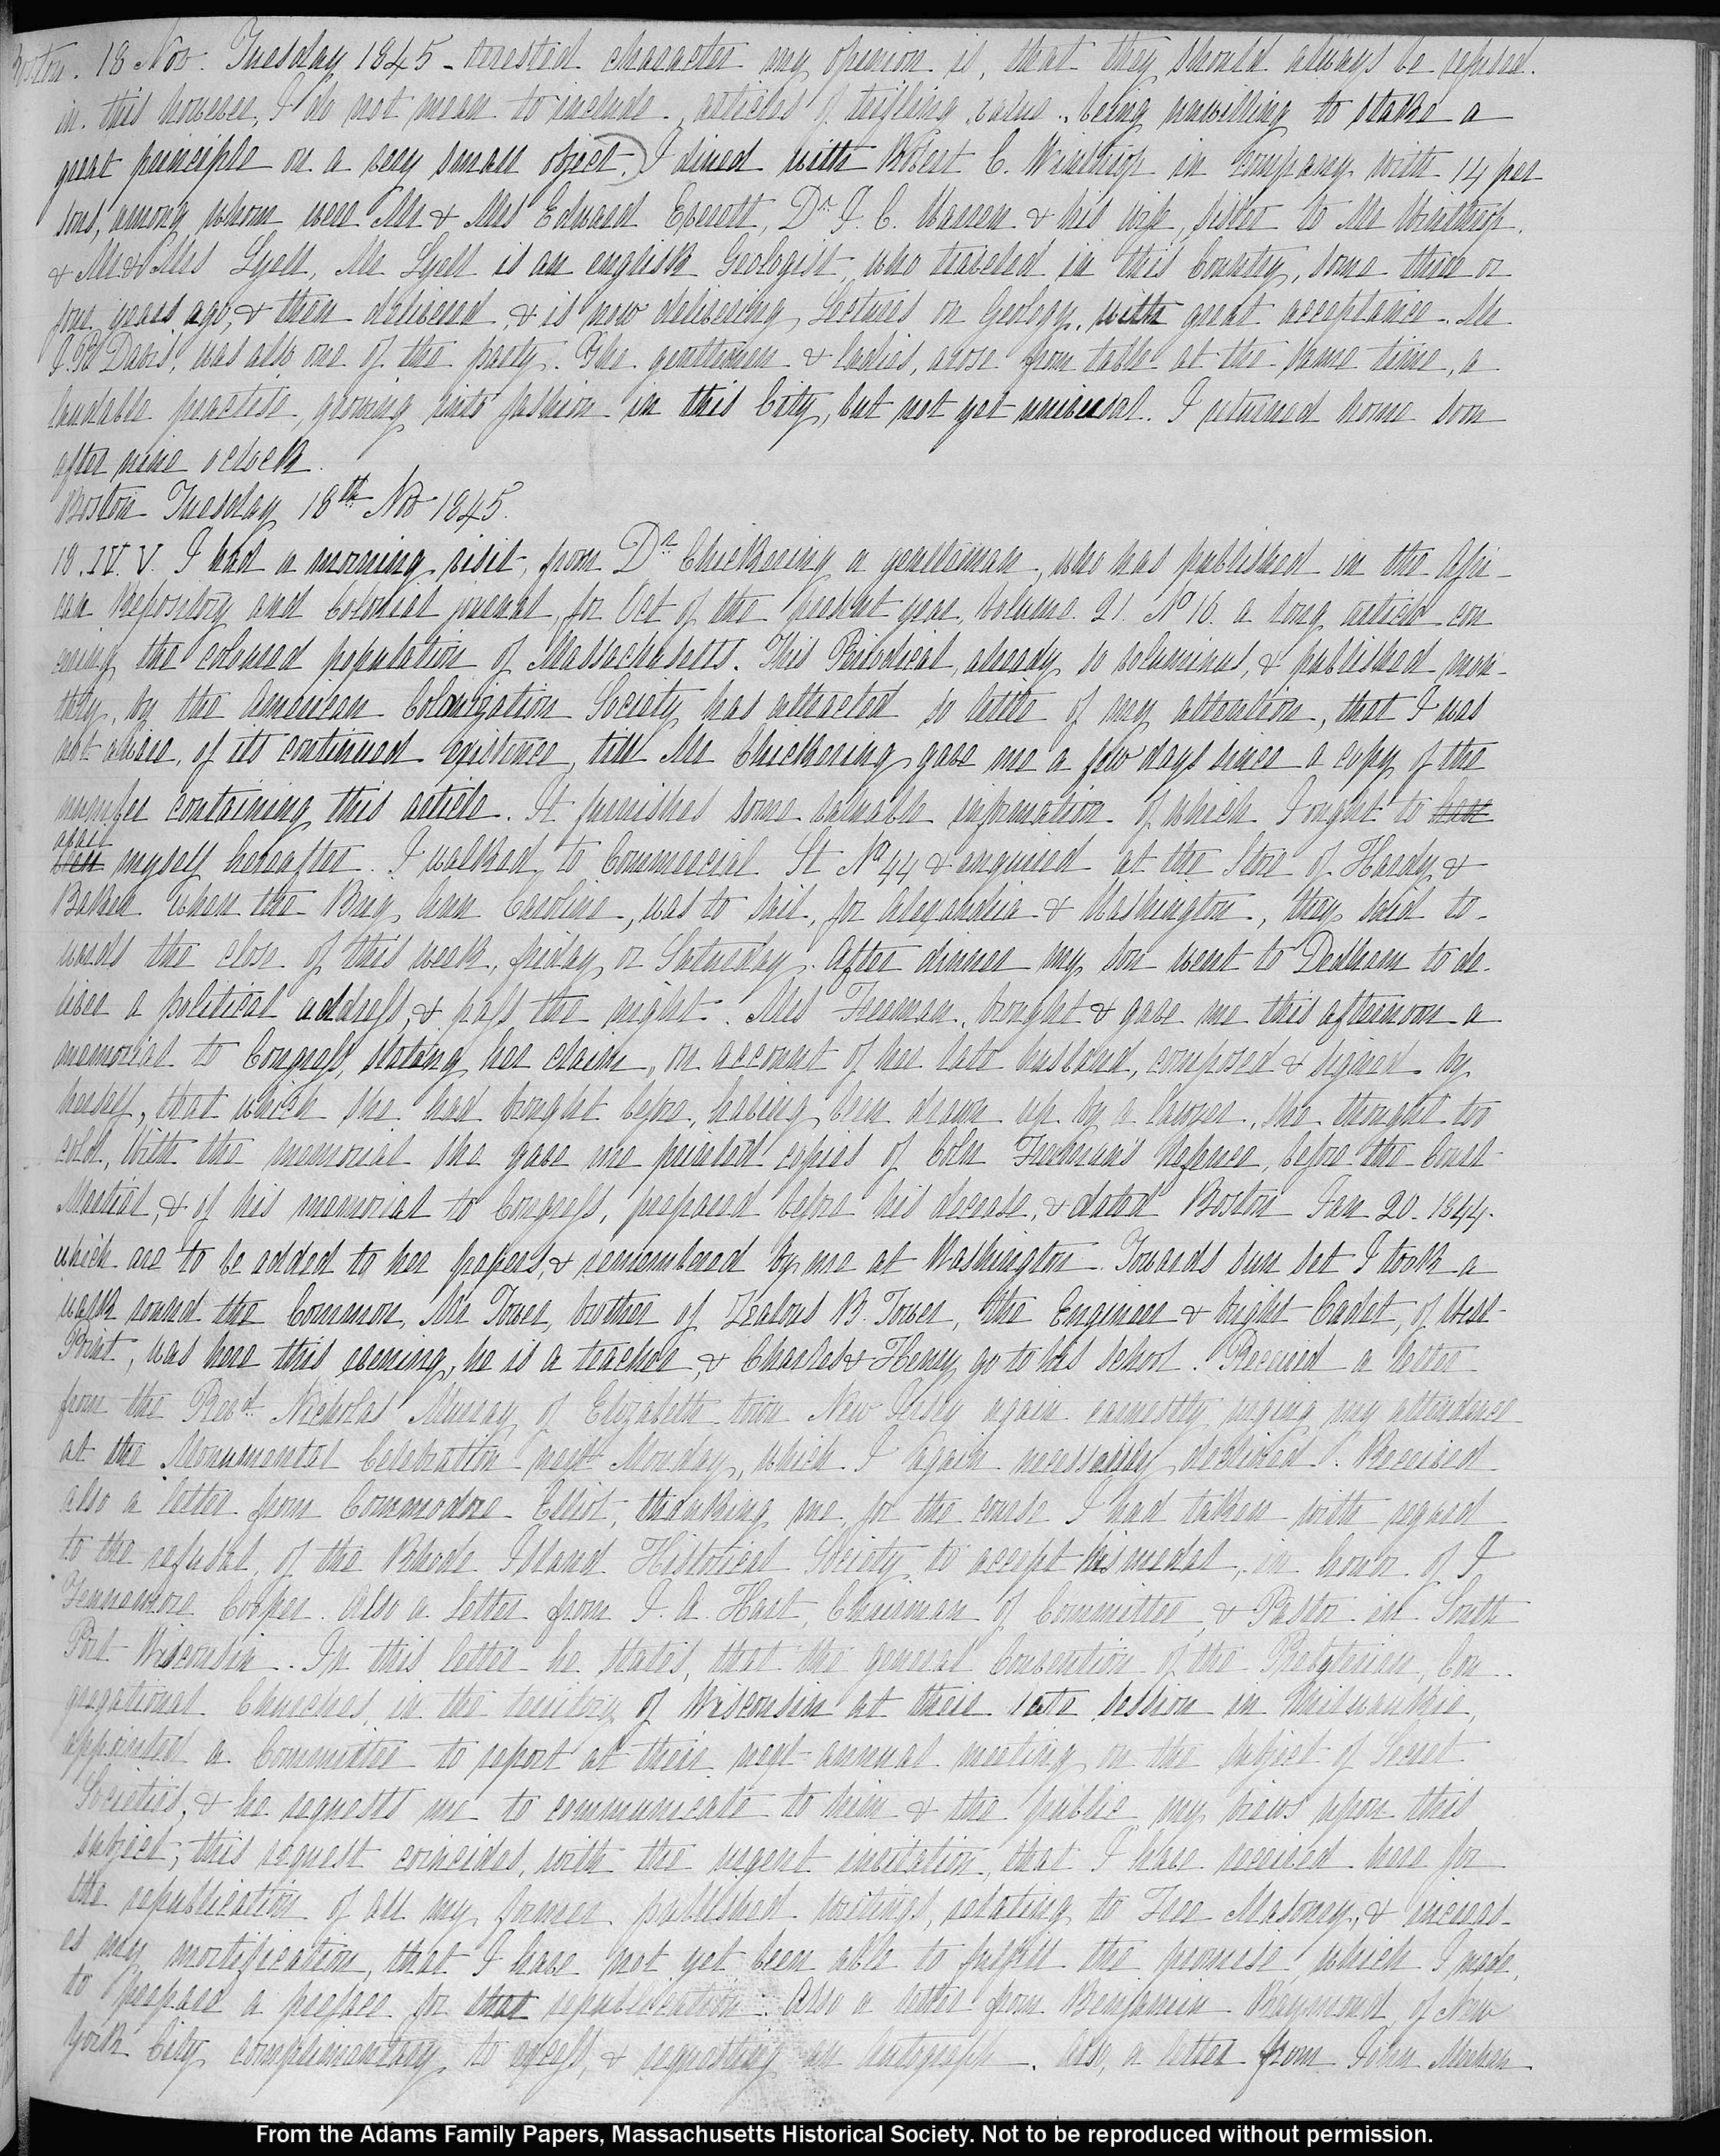 Boston. 18 Nov. Tuesday 1845 - terested character my opinion is, that they should always be refused.
in this however, I do not mean to include, articles of trifling value, being unwilling to stake a
great principle on a very small object.) I dined with Robert C. Winthrop in company with 14 per
sons, among whom were Mr & Mrs Edward Everett, Dr. J. C. Warren & his wife, sister to Mr Winthrop,
& Mr & Mrs Lyell, Mr Lyell is an english Geologist, who traveled in this Country, some three or
four years ago, & then delivered, & is now delivering Lectures on Geology, with great acceptance. Mr
Davis, was also one of the party. The gentlemen & ladies, arose from table at the same time, a
laudable practise, growing into fashion in this City, but not yet universal. I returned home soon
after nine oclock.
Boston Tuesday 18th Nov 1845.
18. IV. V. I had a morning visit, from Dr. Chickering a gentleman, who has published in the Afri-
can Repository and Colonial journal, for Oct of the present year, Volume. 21. No 16. a long article con
cerning the coloured population of Massachusetts. This Periodical, already so voluminus, & published mon-
thly, by the American Colonization Society has attracted so little of my attention, that I was
not aware, of its continued existence, till Mr Chickering gave me a few days since a copy of the
number containing this article. It furnishes some valuable information of which I ought to have
avail
been myself hereafter. I walked to Commercial St No 44 & enquired at the Store of Hardy &
Baker when the Brig Ann Caroline, was to sail, for Alexandria & Washington, they said to-
wards the close of this week, friday or Saturday. After dinner my son went to Dedham to de-
liver a political address, & pass the night. Mrs Freeman, brought & gave me this afternoon a
memorial to Congress, stating her claim, on account of her late husband, composed & signed by
herself, that which she had brought before, having been drawn up by a lawyer, she thought too
cold, With the memorial she gave me printed copies of Coln Freeman's defence, before the Court
Martial, & of his memorial to Congress, prepared before his decease, & dated Boston Jan 20. 1844.
which are to be added to her papers, & remembered by me at Washington. Towards sun set I took a
walk round the Common, Mr Tower, brother of Zealous B. Tower, the Engineer & bright Cadet, of West
Point, was here this evening, he is a teacher, & Charles & Henry go to his school. Received a letter
from the Revd. Nicholas Murray of Elizabeth town New Jersey again earnestly urging my attendance
at the Monumental Celebration next Monday, which I again necessarily declined. Received
also a letter from Commodore Elliot, thanking me for the course I had taken with regard
to the refusal, of the Rhode Island Historical Society to accept his medal, in honor of J
Fennemore Cooper. Also a Letter from J. A. Hart, Chairman of Committee, & Pastor in South
Port Wisconsin. In this letter he states, that the general Convention of the Presbyterian, Con-
gregational Churches, in the territory of Wisconsin at their late session in Milwaukie,
appointed a Committee to report at their next annual meeting on the subject of Secret
Societies, & he requests me to communicate to him & the public my views upon this
subject, this request coincides, with the urgent invitation, that I have received here for
the republication of all my former published writings, relating to Free Masonry, & increas-
es my mortification, that I have not yet been able to fulfill the promise which I made,
to prepare a preface for that republication. Also a letter from Benjamin Raymond, of New
York City complimentary to excess, & requesting an Autograph. Also, a letter from John Meehan
From the Adams Family Papers, Massachusetts Historical Society. Not to be reproduced without permission.